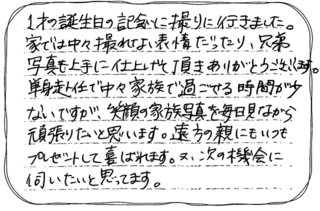 1才の誕生日の記念に撮りに行きました。
家では中々撮れない表情だったり、兄弟
写真も上手に仕上げて頂きありがとうございます。
単身赴任で中々家族で過ごせる時間が少
ないですが、笑顔の家族写真を毎日見ながら
頑張りたいと思います。遠方の親にもいつも
プレゼントして喜ばれます。又、次の機会に
伺いたいと思ってます。